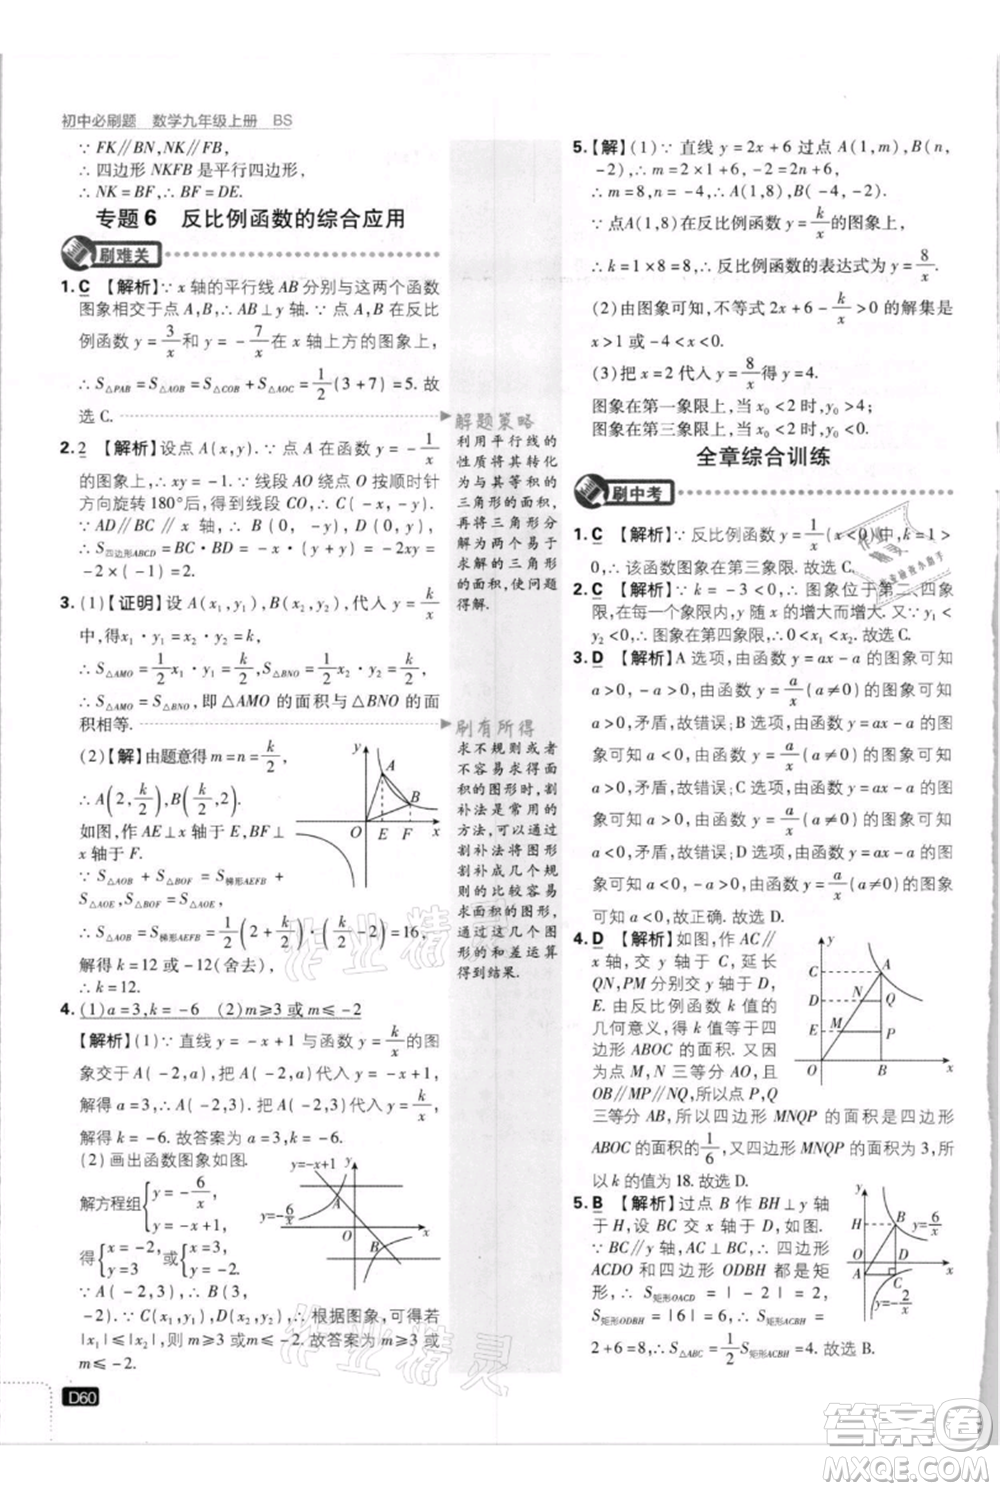 初中必刷题 数学九年级上册 BS
∵ FK∥BN,NK∥FB,
∴ 四边形 NKFB 是平行四边形,
∴ NK = BF,∴ BF = DE.
专题 6 反比例函数的综合应用
刷难关
1. C 【解析】∵ x 轴的平行线 AB 分别与这两个函数
图象相交于点 A,B,∴ AB⊥y 轴. ∵ 点 A,B 在反比
例函数 y = 3/x 和 y = -7/x 在 x 轴上方的图象上,
∴ S△PAB = S△AOB = S△COB + S△AOC = 1/2(3+7) = 5. 故
选 C.
2. 2 【解析】设点 A(x,y). ∵ 点 A 在函数 y = -1/x
的图象上,∴ xy = -1. ∵ 线段 AO 绕点 O 顺时针
方向旋转 180° 后,得到线段 CO,∴ OA = OC.
∵ AD∥BC∥x 轴,∴ OD = OB = |y|,
∴ S四边形ABCD = |x|·|2y| = 2|xy| = 2.
3. (1)【证明】设 A(x₁,y₁),B(x₂,y₂),代入 y = k/x
中,得x₁·y₁ = x₂·y₂ = k.
∴ S△AMO = 1/2x₁·y₁ = 1/2k,S△BNO = 1/2x₂·y₂ = 1/2k,
∴ S△AMO = S△BNO,即△AMO 的面积与△BNO 的面
积相等.
(2)【解】由题意得 m = n = k/2,
∴ A(2,k/2),B(k/2,2).
如图,作 AE⊥x 轴于 E,BF⊥
x 轴于 F.
∵ S△AOB + S△BOF = S梯形AEFB +
S△AOE,S△BOF = S△AOE,
∴ S△AOB = S梯形AEFB = 1/2(2+k/2)(k/2-2) = 16,
解得 k = 12 或 k = -12(舍去).
∴ k = 12.
y A B O E F x
4. (1)a=3,k=-6 (2)m≥3或m≤-2
【解析】(1)∵ 直线 y = -x+1 与函数 y = k/x 的图
象交于 A(-2,a),∴ 把 A(-2,a)代入 y = -x+1
解得 a = 3,∴ A(-2,3). 把 A(-2,3)代入 y = k/x
解得 k = -6. 故答案为 a = 3,k = -6.
(2)画出函数图象如图.
解方程组{y = -6/x, y = -x+1
得{x = -2, y = 3 或{x = 3, y = -2.
∵ A(-2,3),∴ B(3,
-2). ∵ C(x₁,y₁),D(x₂,y₂),∴ 根据图象,可得若
|x₁|≤|x₂|,则 m≥3 或 m≤-2. 故答案为 m≥3 或
m≤-2.
y=-x+1 y y=-6/x O x
D60
解题策略
利用平行线的
性质将其转化
为与其等积的
三角形的面积,
再将三角形分
割成两个易于
求解的三角形
的面积,使问题
得解.
刷有所得
求不规则或者
不容易求得面
积的图形时,割
补法是常用的
方法,可以通过
割补法将图形
割补成几个规
则的比较容易
求面积的图形,
通过这些图形
的和差运算
得到结果.
5. 【解】(1)∵ 直线 y = 2x+6 过点 A(1,m),B(n,
-2),∴ m = 2+6,-2 = 2n+6,
∴ m = 8,n = -4,∴ A(1,8),B(-4,-2).
∵ 点A(1,8)在反比例函数 y = k/x 的图象上,
∴ k = 1×8 = 8,∴ 反比例函数的表达式为 y = 8/x.
(2)由图象可知,不等式 2x+6-k/x>0 的解集为
x>1或-4<x<0.
(3)把 x = 2 代入 y = 8/x 得 y = 4.
图象在第一象限上,当 x₀<2 时,y₀>4;
图象在第三象限上,当 x₀<2 时,y₀<0.
全章综合训练
刷中考
1. C 【解析】∵ 反比例函数 y = 1/x(x<0)中,k = 1>
0,∴ 该函数图象在第三象限. 故选 C.
2. C 【解析】∵ k = -3<0,∴ 图象位于第二、四象
限,且在每个象限内,y 随 x 的增大而增大. 又∵ y₁
<y₂<0,∴ 图象在第四象限,∴ 0<x₁<x₂. 故选 C.
3. D 【解析】A 选项,由函数 y = ax-a 的图象可知
a>0,-a>0,由函数 y = a/x(a≠0)的图象可知
a<0,矛盾,故错误;B 选项,由函数 y = ax-a 的图
象可知 a<0,由函数 y = a/x(a≠0)的图象可知
a>0,矛盾,故错误;C 选项,由函数 y = ax-a 的图
象可知 a>0,由函数 y = a/x(a≠0)的图象可知
a<0,矛盾,故错误;D 选项,由函数 y = ax-a 的图
象可知 a<0,由函数 y = a/x(a≠0)的图象可知
a<0,故正确. 故选 D.
4. D 【解析】如图,作 AC∥
x 轴,交 y 轴于点 C,延长
QN,PM 分别交 y 轴于点 D,
E. 由反比例函数 k 值的
几何意义,得 k 值等于四边
形 ABOC 的面积. 又因为
点 M,N 三等分 AO,且
OB∥PM∥NQ,所以点 P,Q
三等分 AB,所以四边形 MNQP 的面积是四边形
ABOC 的面积的1/6,又四边形 MNQP 的面积为 3,所
以 k 的值为 18. 故选 D.
y C A D N Q E M P O B x
5. B 【解析】过点 B 作 BH⊥y 轴
于 H,设 BC 交 x 轴于点 D.
∵ BC∥y 轴,∴ 四边形
ACDO 和四边形 ODBH 都是矩
形,∴ S矩形OACD = |-2| = 2,
S矩形ODBH = |6| = 6,∴ S矩形ACBH =
2+6 = 8,∴ S△ABC = 1/2S矩形ACBH = 4. 故选 B.
y H B y=6/x O D x A C y=-2/x
作业精灵
作业精灵
答案卷
MXQE.COM